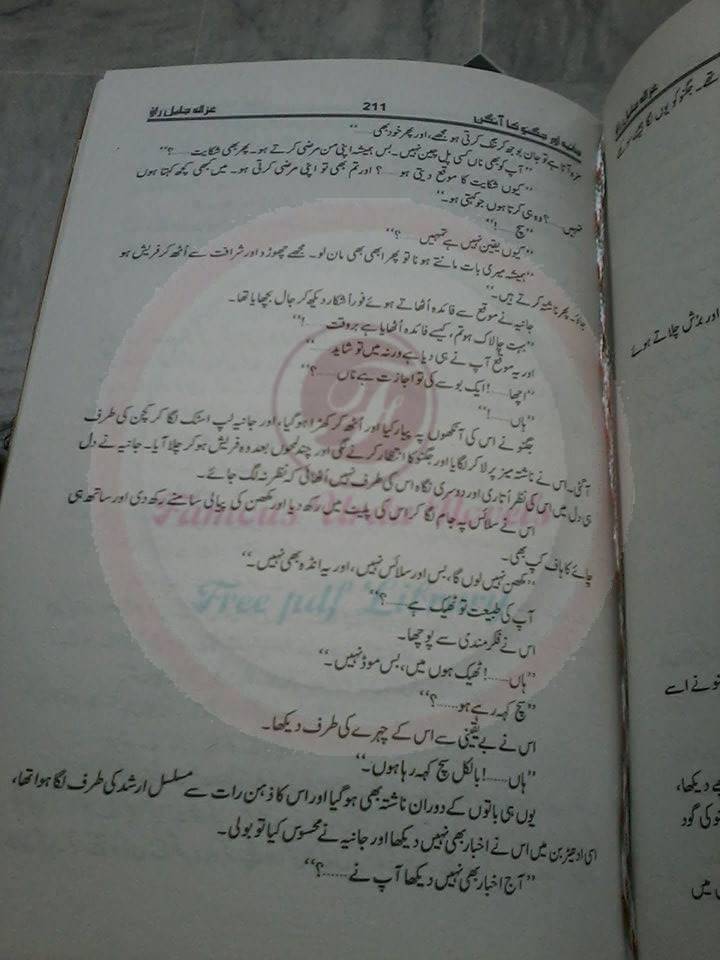 غزالہ جلیل راؤ
211
جانیہ اور جگنو کا آنگن
مزہ آتا ہے تو جان بوجھ کر تنگ کرتی ہو مجھے، اور پھر خود بھی......
”آپ کو بھی ناں کسی پل چین نہیں۔ بس ہمیشہ اپنی من مرضی کرتے ہو۔ پھر بھی شکایت......؟“
”کیوں شکایت کا موقع دیتی ہو......؟ اور تم بھی تو اپنی مرضی کرتی ہو۔ میں کبھی کچھ کہتا ہوں
نہیں......؟ وہ ہی کرتا ہوں جو کہتی ہو۔“
”سچ......!“
”کیوں یقین نہیں ہے تمہیں......؟“
”ہمیشہ میری بات مانتے ہو نا تو پھر ابھی بھی مان لو۔ مجھے چھوڑ دو اور شرافت سے اُٹھ کر فریش ہو
جاؤ۔ پھر ناشتہ کرتے ہیں۔“
جانیہ نے موقع سے فائدہ اُٹھاتے ہوئے فوراً شکار دیکھ کر جال بچھایا تھا۔
”بہت چالاک ہو تم، کیسے فائدہ اُٹھایا ہے بروقت......!“
اور یہ موقع آپ نے ہی دیا ہے ورنہ میں تو شاید......“
”اچھا......! ایک بوسے کی تو اجازت ہے ناں......؟“
”ہاں......!“
جگنو نے اس کی آنکھوں پہ پیار کیا اور اُٹھ کر کھڑا ہو گیا، اور جانیہ لپ اسٹک لگا کر کچن کی طرف
آ گئی۔ اس نے ناشتہ میز پر لا کر لگایا اور جگنو کا انتظار کرنے لگی اور چند لمحوں بعد وہ فریش ہو کر چلا آیا۔ جانیہ نے دل
ہی دل میں اس کی نظر اُتاری اور دوسری نگاہ اس کی طرف نہیں اُٹھائی کہ نظر نہ لگ جائے۔
اس نے سلائس پہ جام لگا کر اس کی پلیٹ میں رکھ دیا اور مکھن کی پیالی سامنے رکھ دی اور ساتھ ہی
چائے کا ہاف کپ بھی۔
”مکھن نہیں لوں گا، بس اور سلائس نہیں، اور یہ انڈہ بھی نہیں۔“
آپ کی طبیعت تو ٹھیک ہے......؟“
اس نے فکرمندی سے پوچھا۔
”ہاں......! ٹھیک ہوں میں، بس موڈ نہیں۔“
”سچ کہہ رہے ہو......؟“
اس نے بے یقینی سے اس کے چہرے کی طرف دیکھا۔
”ہاں......! بالکل سچ کہہ رہا ہوں۔“
یوں ہی باتوں کے دوران ناشتہ بھی ہو گیا اور اس کا ذہن رات سے مسلسل ارشد کی طرف لگا ہوا تھا،
اسی ادھیڑ بن میں اس نے اخبار بھی نہیں دیکھا اور جانیہ نے محسوس کیا تو بولی۔
”آج اخبار بھی نہیں دیکھا آپ نے......؟“
Famous Urdu Novels
Free pdf Library
غزالہ جلیل راؤ
اور بدُش چلاتے ہوئے
نو نے اسے
دیکھا،
نو کی گود